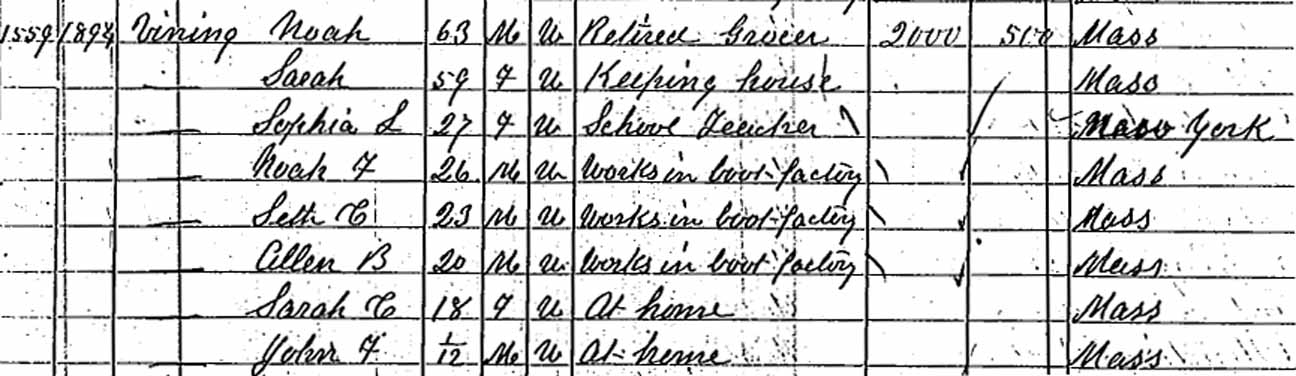 1559 1894 Vining Noah 63 M W Retired Grocer 2000 500 Mass
— Sarah 59 F W Keeping house Mass
— Sophia L 27 F W School Teacher York
— Noah F 26 M W Works in boot-factory Mass
— Seth C 23 M W Works in boot-factory Mass
— Allen B 20 M W Works in boot factory Mass
— Sarah C 18 F W At home Mass
— John F 1/12 M W At home Mass